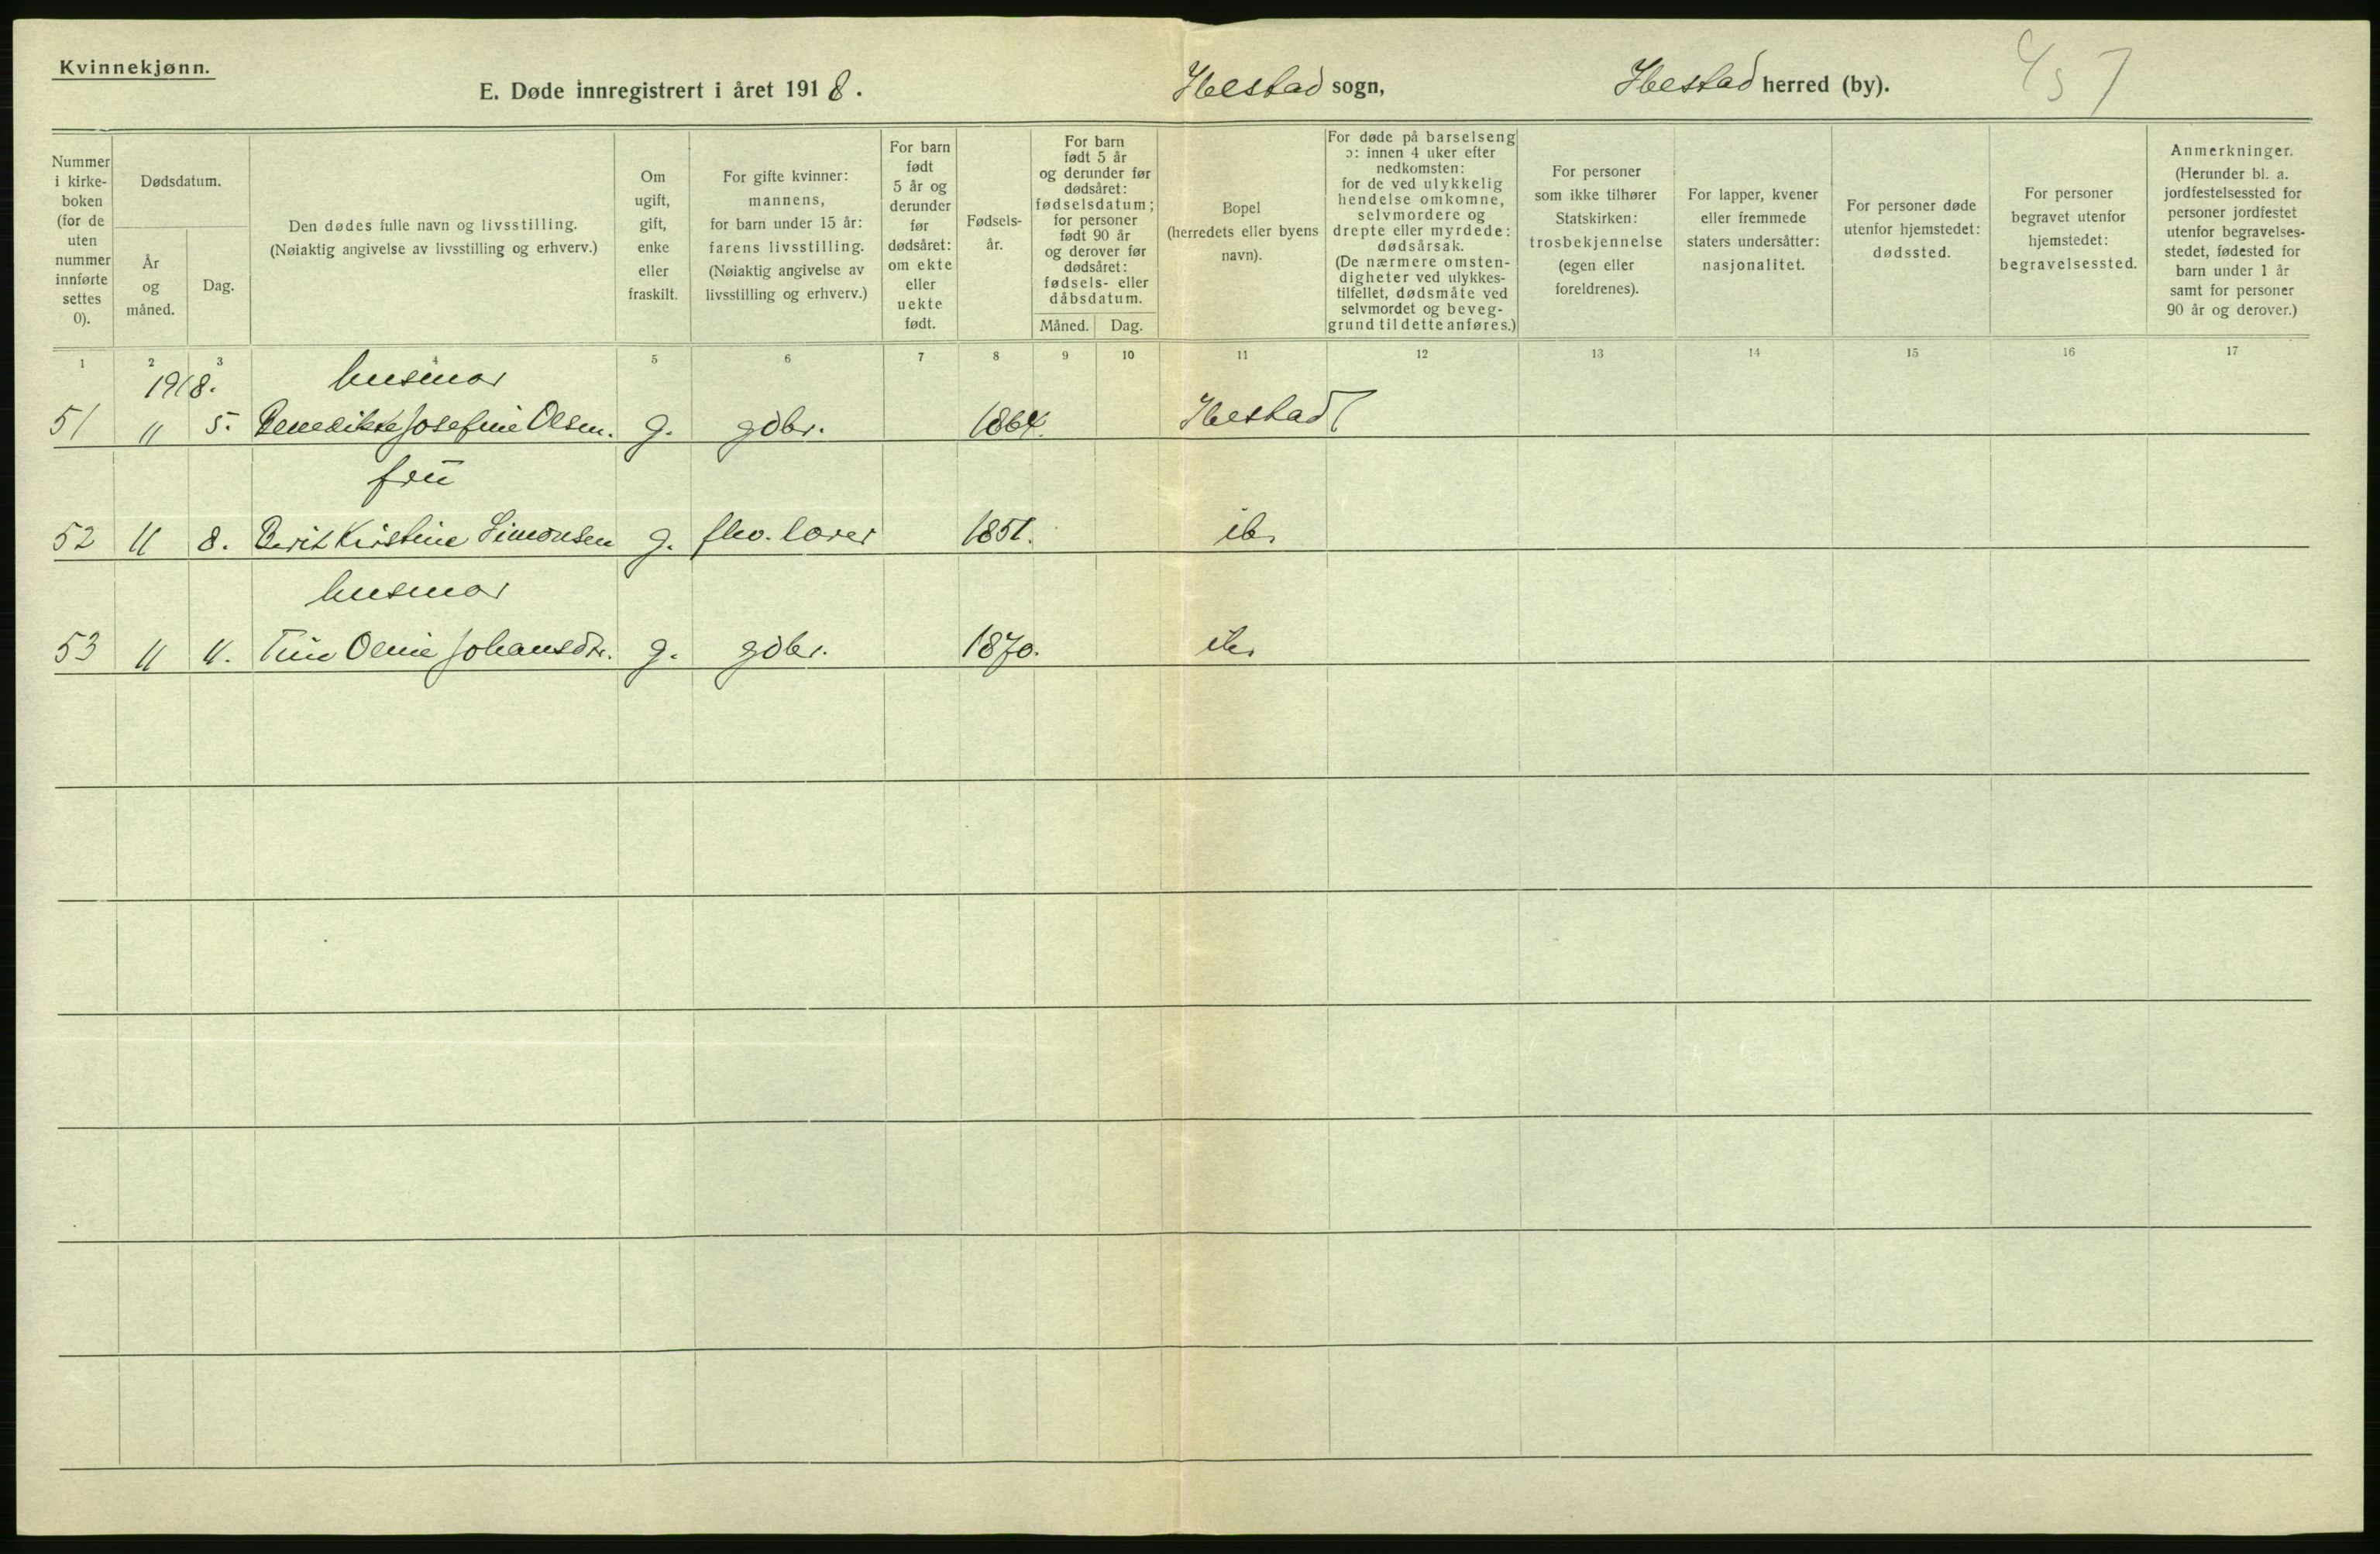 Kvinnekjønn.
E. Døde innregistrert i året 1918. Ibestad sogn, Ibestad herred (by).
Nummer i kirkeboken (for de uten nummer innførte settes 0).
Dødsdatum.
År og måned.
Dag.
Den dødes fulle navn og livsstilling.
(Nøiaktig angivelse av livsstilling og erhverv.)
Om ugift, gift, enke eller fraskilt.
For gifte kvinner: mannens, for barn under 15 år: farens livsstilling.
(Nøiaktig angivelse av livsstilling og erhverv.)
For barn født 5 år og derunder før dødsåret: om ekte eller uekte født.
Fødsels-år.
For barn født 5 år og derunder før dødsåret: fødselsdatum; for personer født 90 år og derover før dødsåret: fødsels- eller dåbsdatum.
Måned. Dag.
Bopel (herredets eller byens navn).
For døde på barselseng ɔ: innen 4 uker efter nedkomsten: for de ved ulykkelig hendelse omkomne, selvmordere og drepte eller myrdede: dødsårsak.
(De nærmere omsten-digheter ved ulykkes-tilfellet, dødsmåte ved selvmordet og beveg-grund til dette anføres.)
For personer som ikke tilhører Statskirken: trosbekjennelse (egen eller foreldrenes).
For lapper, kvener eller fremmede staters undersåtter: nasjonalitet.
For personer døde utenfor hjemstedet: dødssted.
For personer begravet utenfor hjemstedet: begravelsessted.
Anmerkninger.
(Herunder bl. a. jordfestelsessted for personer jordfestet utenfor begravelses-stedet, fødested for barn under 1 år samt for personer 90 år og derover.)
1 2 3 4 5 6 7 8 9 10 11 12 13 14 15 16 17
1918. husmor
51 11 5. Benedikte Josefine Olsen. g. gdbr. 1864. Ibestad
frü
52 11 8. Berit Kirstine Simonsen g. 1851. ib.
husmor
53 11 4. Oline Johansdtr. g. gdbr. 1870. ib.